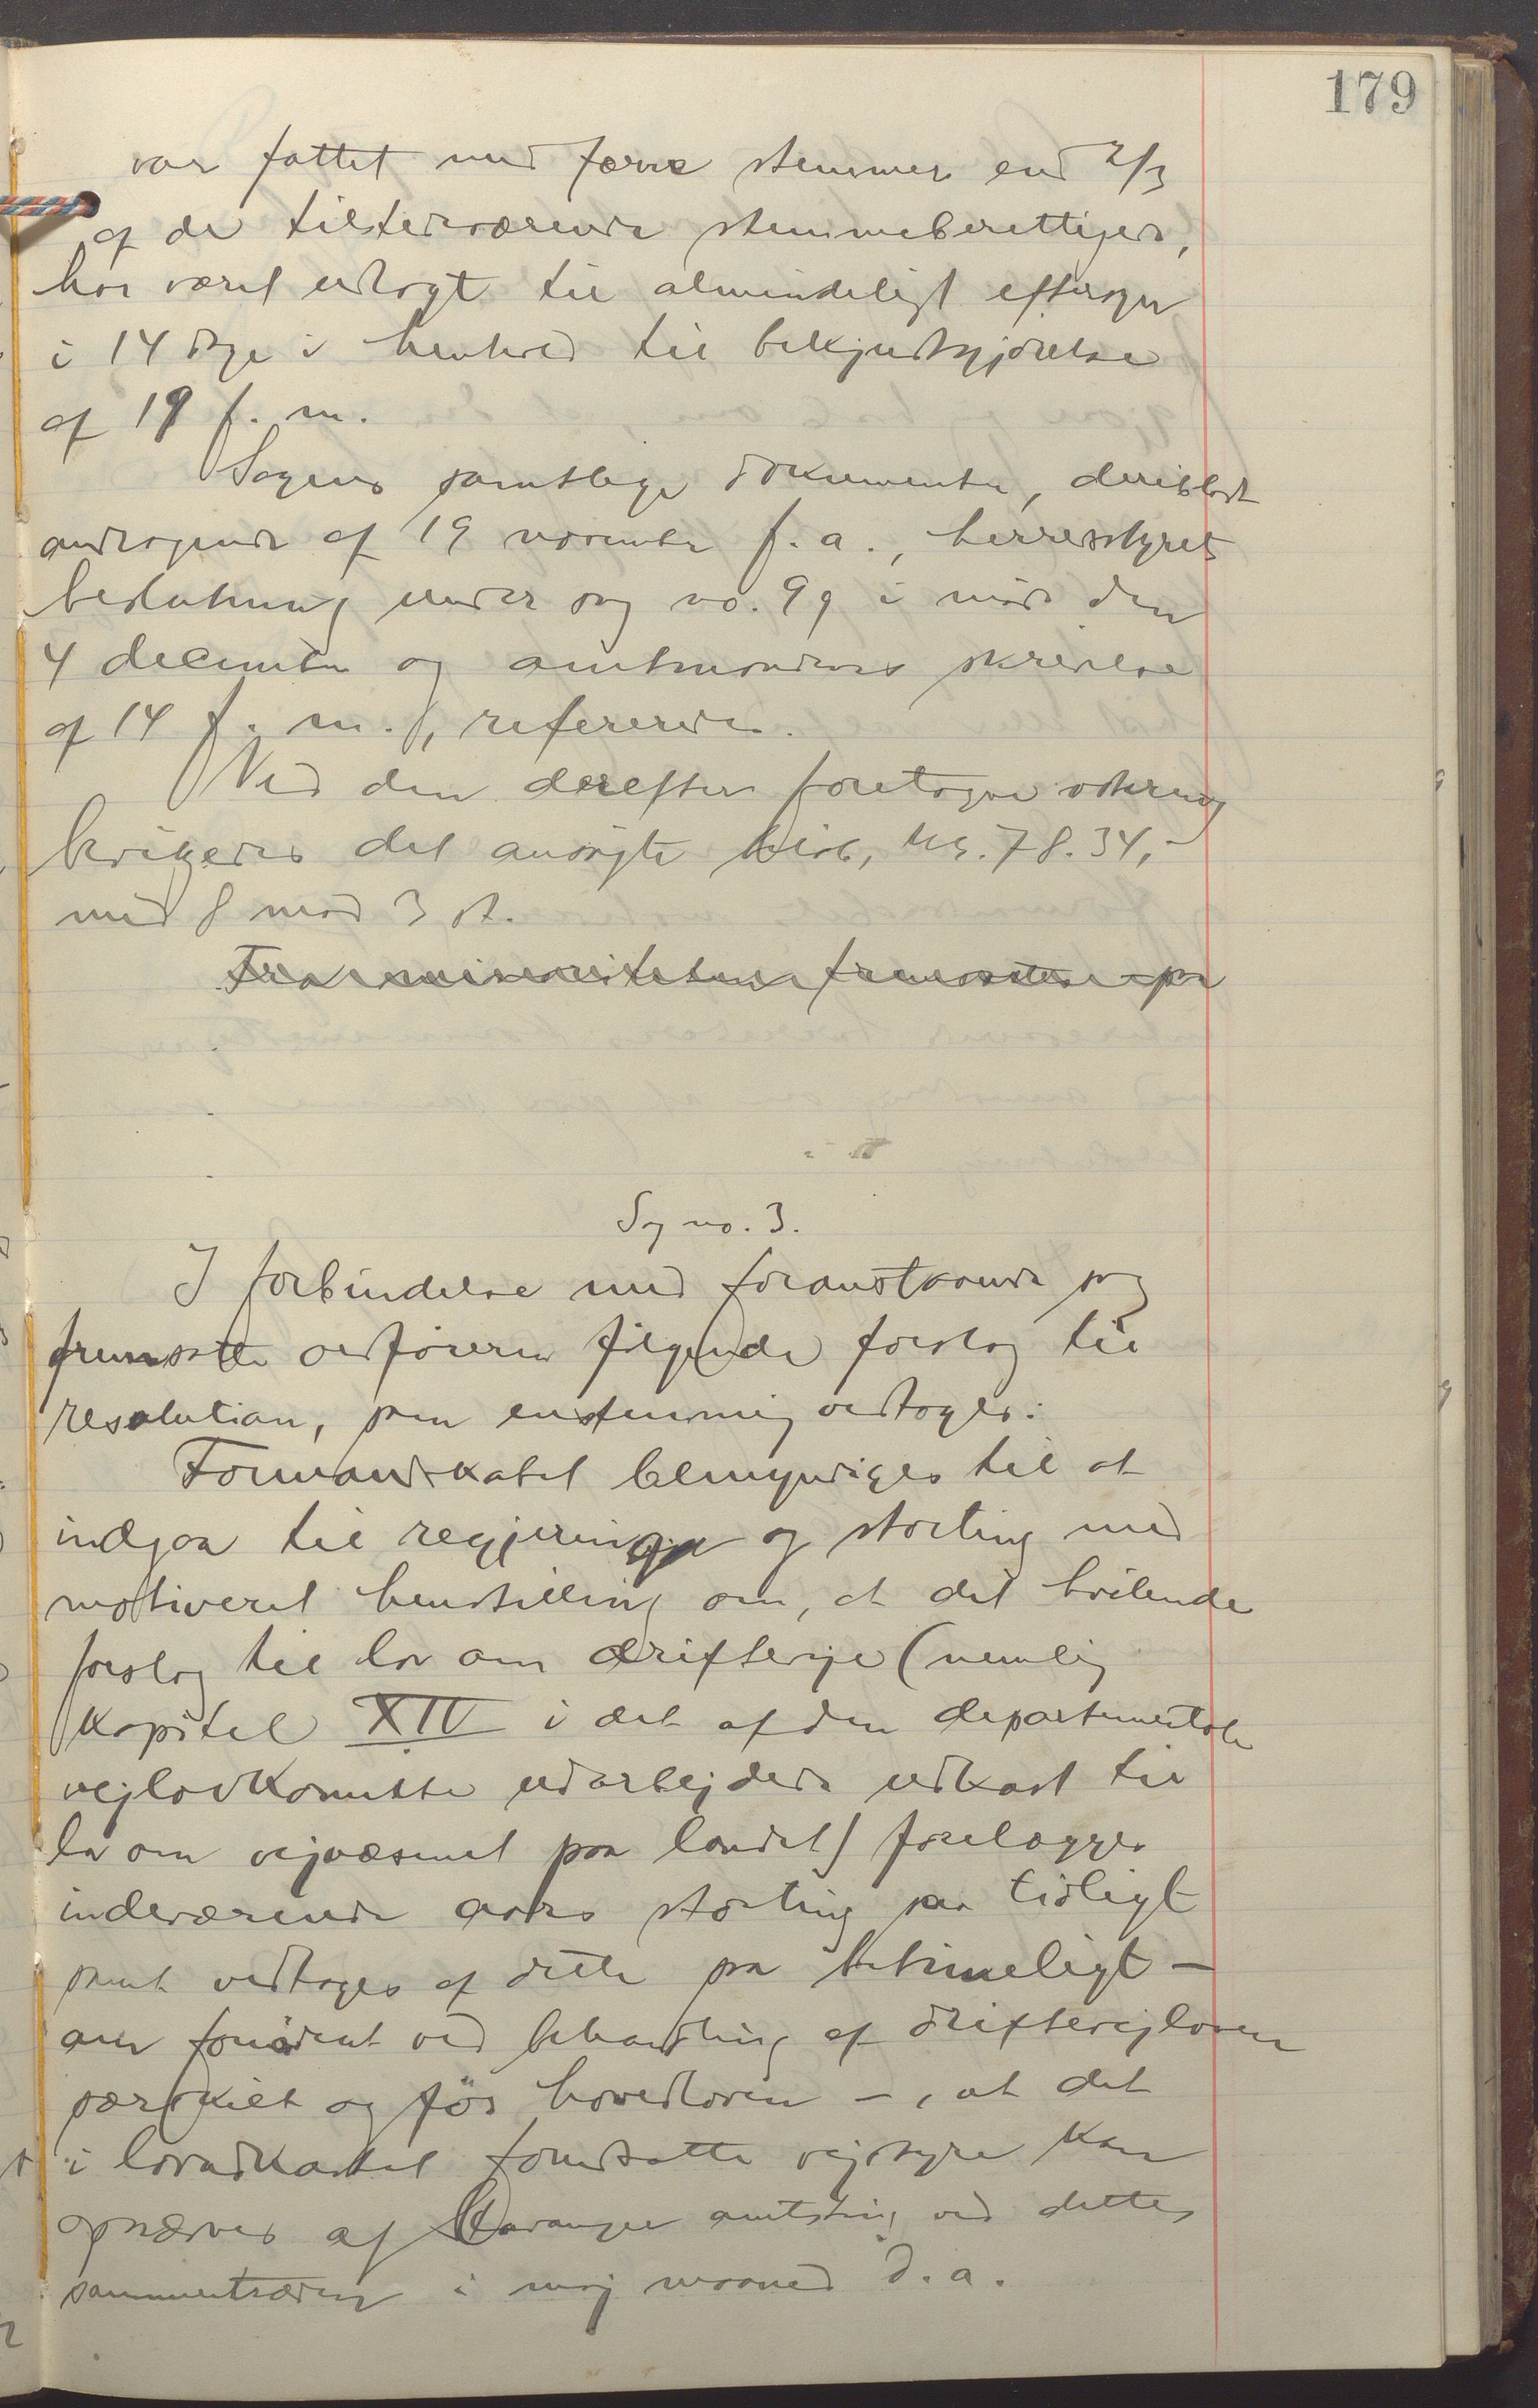 179
var fattet med færre stemmer end 2/3
af de tilstedeværende stemmeberettigede,
har været udlagt til almindeligt eftersyn
i 14 dage i henhold til bekjendtgjørelse
af 19 f. m.
Sagens samtlige dokumenter, deriblandt
andragende af 19 november f. a., herredsstyrets
beslutning under sag no. 99 i møde den
4 december og amtmandens skrivelse
af 14 f. m., refereredes.
Ved den derefter foretagne votering
bevilgedes det ansøgte beløb, kr. 78.34,-
med 8 mod 3 st.
Fra minoriteten fremsattes saa
Sag no. 3.
I forbindelse med foranstaaende sag
fremsatte ordføreren følgende forslag til
resolution, som enstemmig vedtoges:
Formandskabet bemyndiges til at
indgaa til regjering og storting med
motiveret henstilling om, at det hvilende
forslag til lov om driftevije (nemlig
kapitel XIV i det af den departementale
vejlovkomite udarbejdede udkast til
lov om vejvæsenet paa landet) forelægges
indeværende aars storting saa tidligt
samt vedtages af dette saa betimeligt —
om fornødent ved behandling af driftevejloven
særskilt og før hovedloven —, at det
i lovudkastet forudsatte vejstyre kan
opnævnes af Stavanger amtsting ved dettes
sammentræden i maj maaned d. a.